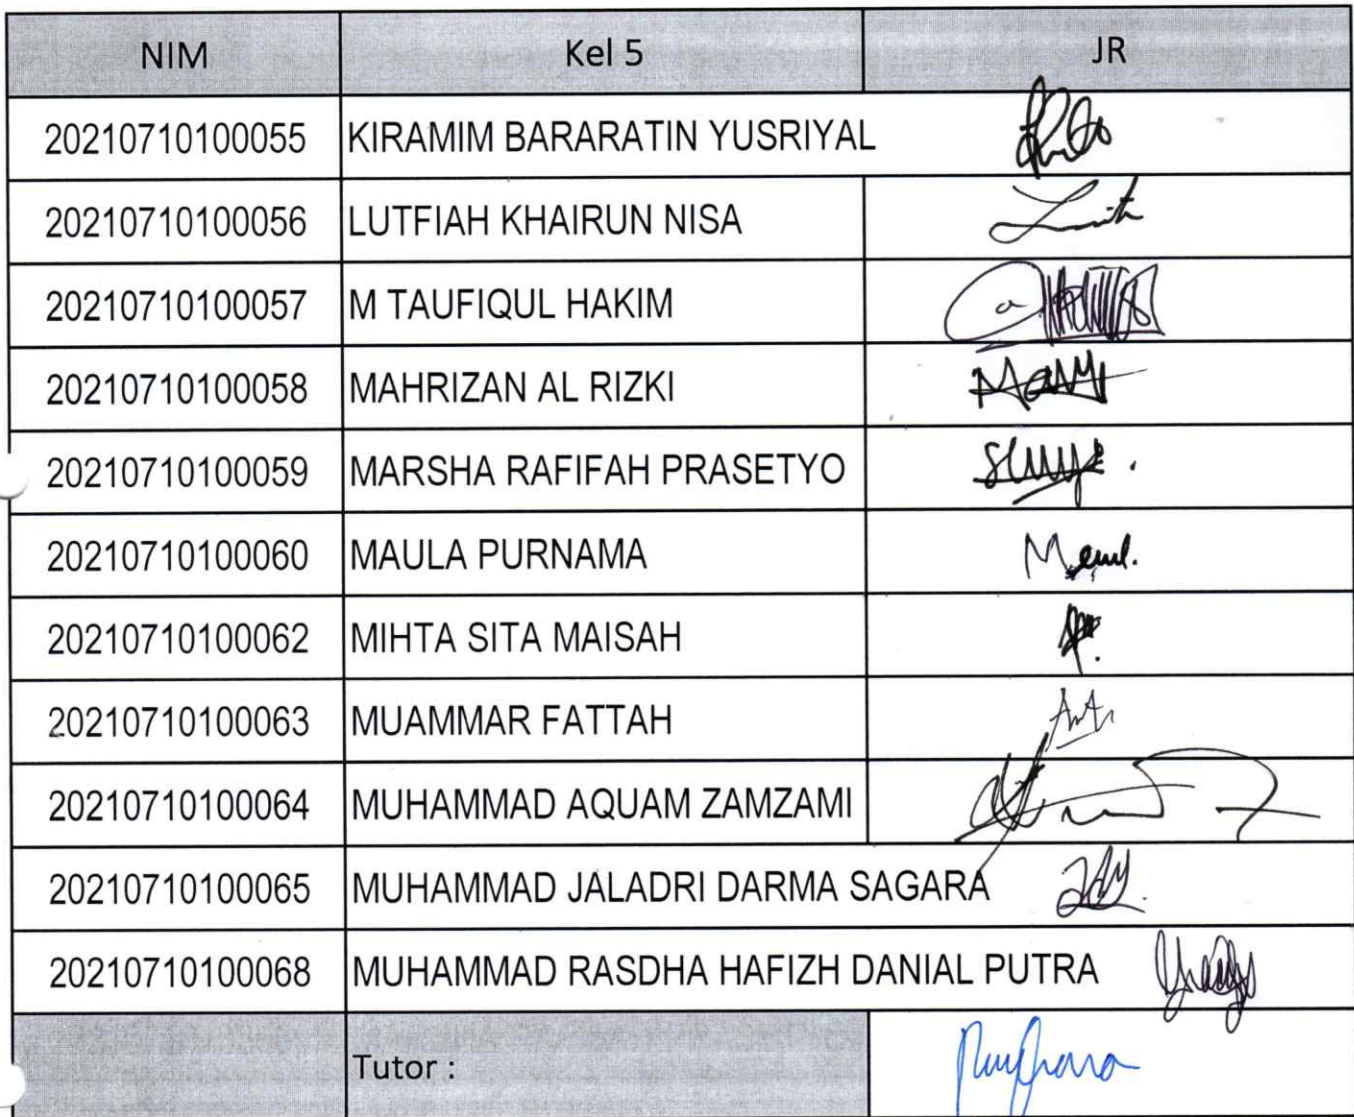 NIM Kel 5 JR
20210710100055 KIRAMIM BARARATIN YUSRIYAL
20210710100056 LUTFIAH KHAIRUN NISA
20210710100057 M TAUFIQUL HAKIM
20210710100058 MAHRIZAN AL RIZKI
20210710100059 MARSHA RAFIFAH PRASETYO
20210710100060 MAULA PURNAMA
20210710100062 MIHTA SITA MAISAH
20210710100063 MUAMMAR FATTAH
20210710100064 MUHAMMAD AQUAM ZAMZAMI
20210710100065 MUHAMMAD JALADRI DARMA SAGARA
20210710100068 MUHAMMAD RASDHA HAFIZH DANIAL PUTRA
Tutor :